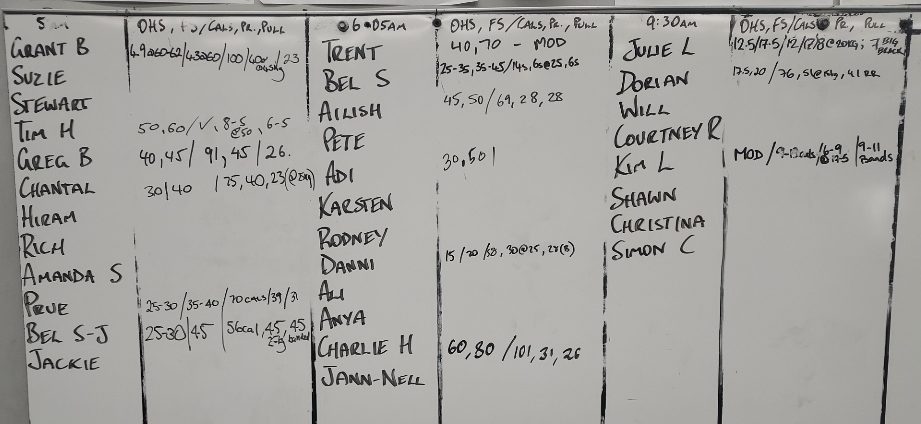 5 am OHS, FS/CALS, PR, PULL
GRANT B
SUZIE
STEWART
TIM H 50,60/✓, 8-5 @50, 6-5
GREG B 40,45/ 91, 45 / 26.
CHANTAL 30/40 /25, 40, 23
HIRAM
RICH
AMANDA S
PRUE 25-30/35-40/70cals/39/31
BEL S-J 25-30/45 /56cal, 45, 45
JACKIE
6:05AM OHS, FS/CALS, PR, PULL
TRENT 40,70 - MOD
BEL S 25-35, 35-45/14s, 6s@25, 6s
AILISH 45,50/69, 28, 28
PETE
ADI 30,50/
KARSTEN
RODNEY
DANNI 15/20/58, 30@25, 28(B)
ALI
ANYA
CHARLIE H 60,80 /101, 31, 26
JANN-NELL
9:30AM OHS, FS/CALS PR, PULL
JULIE L 12.5/17.5/12/17/8@20kg;
DORIAN 17.5,20 / 76,
WILL
COURTNEY R
KIM L MOD / /6-9 @17.5 /9-11 Bands
SHAWN
CHRISTINA
SIMON C